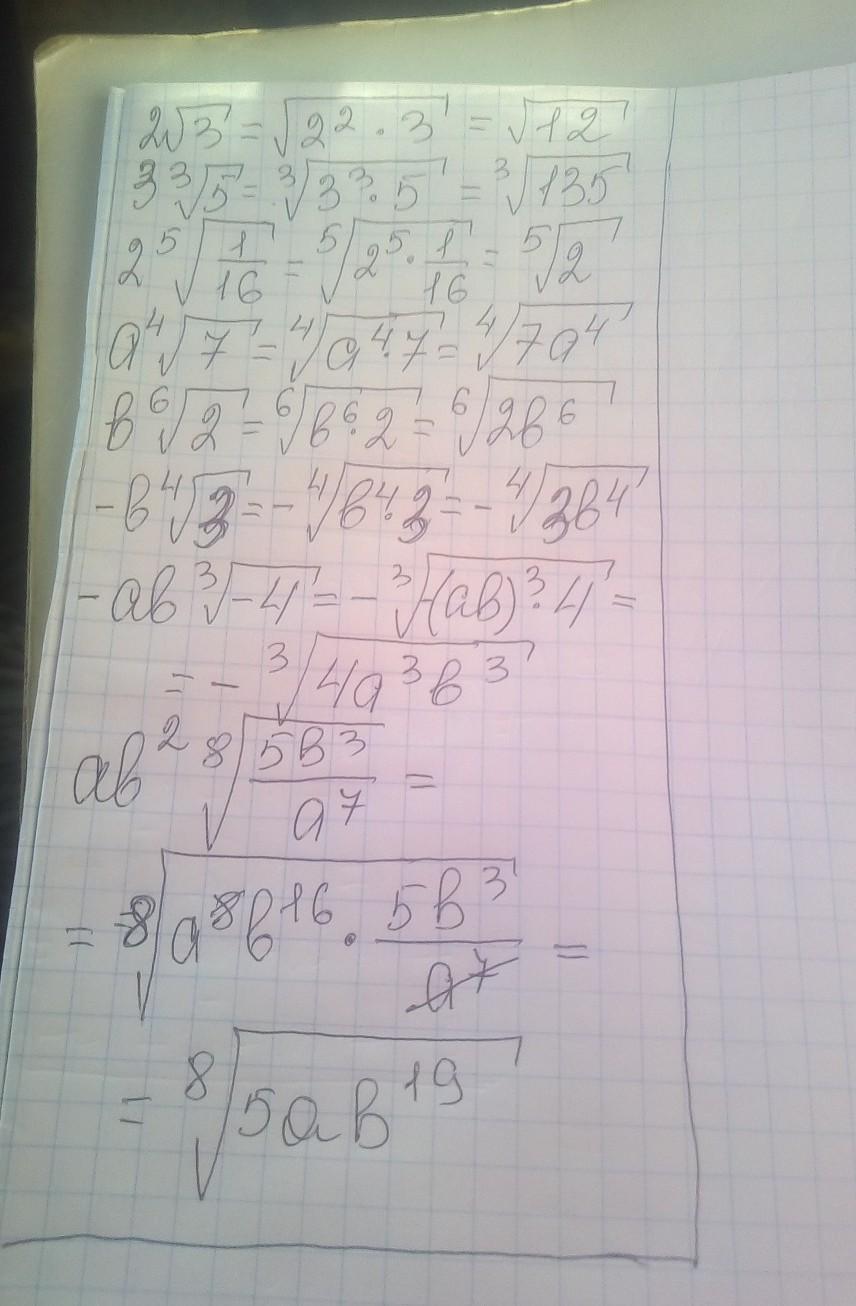 2√3 = √(2² · 3) = √12
3 ³√5 = ³√(3³ · 5) = ³√135
2 ⁵√(1/16) = ⁵√(2⁵ · 1/16) = ⁵√2
a ⁴√7 = ⁴√(a⁴ · 7) = ⁴√(7a⁴)
b ⁶√2 = ⁶√(b⁶ · 2) = ⁶√(2b⁶)
-b ⁴√3 = - ⁴√(b⁴ · 3) = - ⁴√(3b⁴)
-ab ³√(-4) = - ³√(-(ab)³ · 4) =
= - ³√(4a³b³)
ab² ⁸√(5b³/a⁷) =
= ⁸√(a⁸b¹⁶ · 5b³/a⁷) =
= ⁸√(5ab¹⁹)